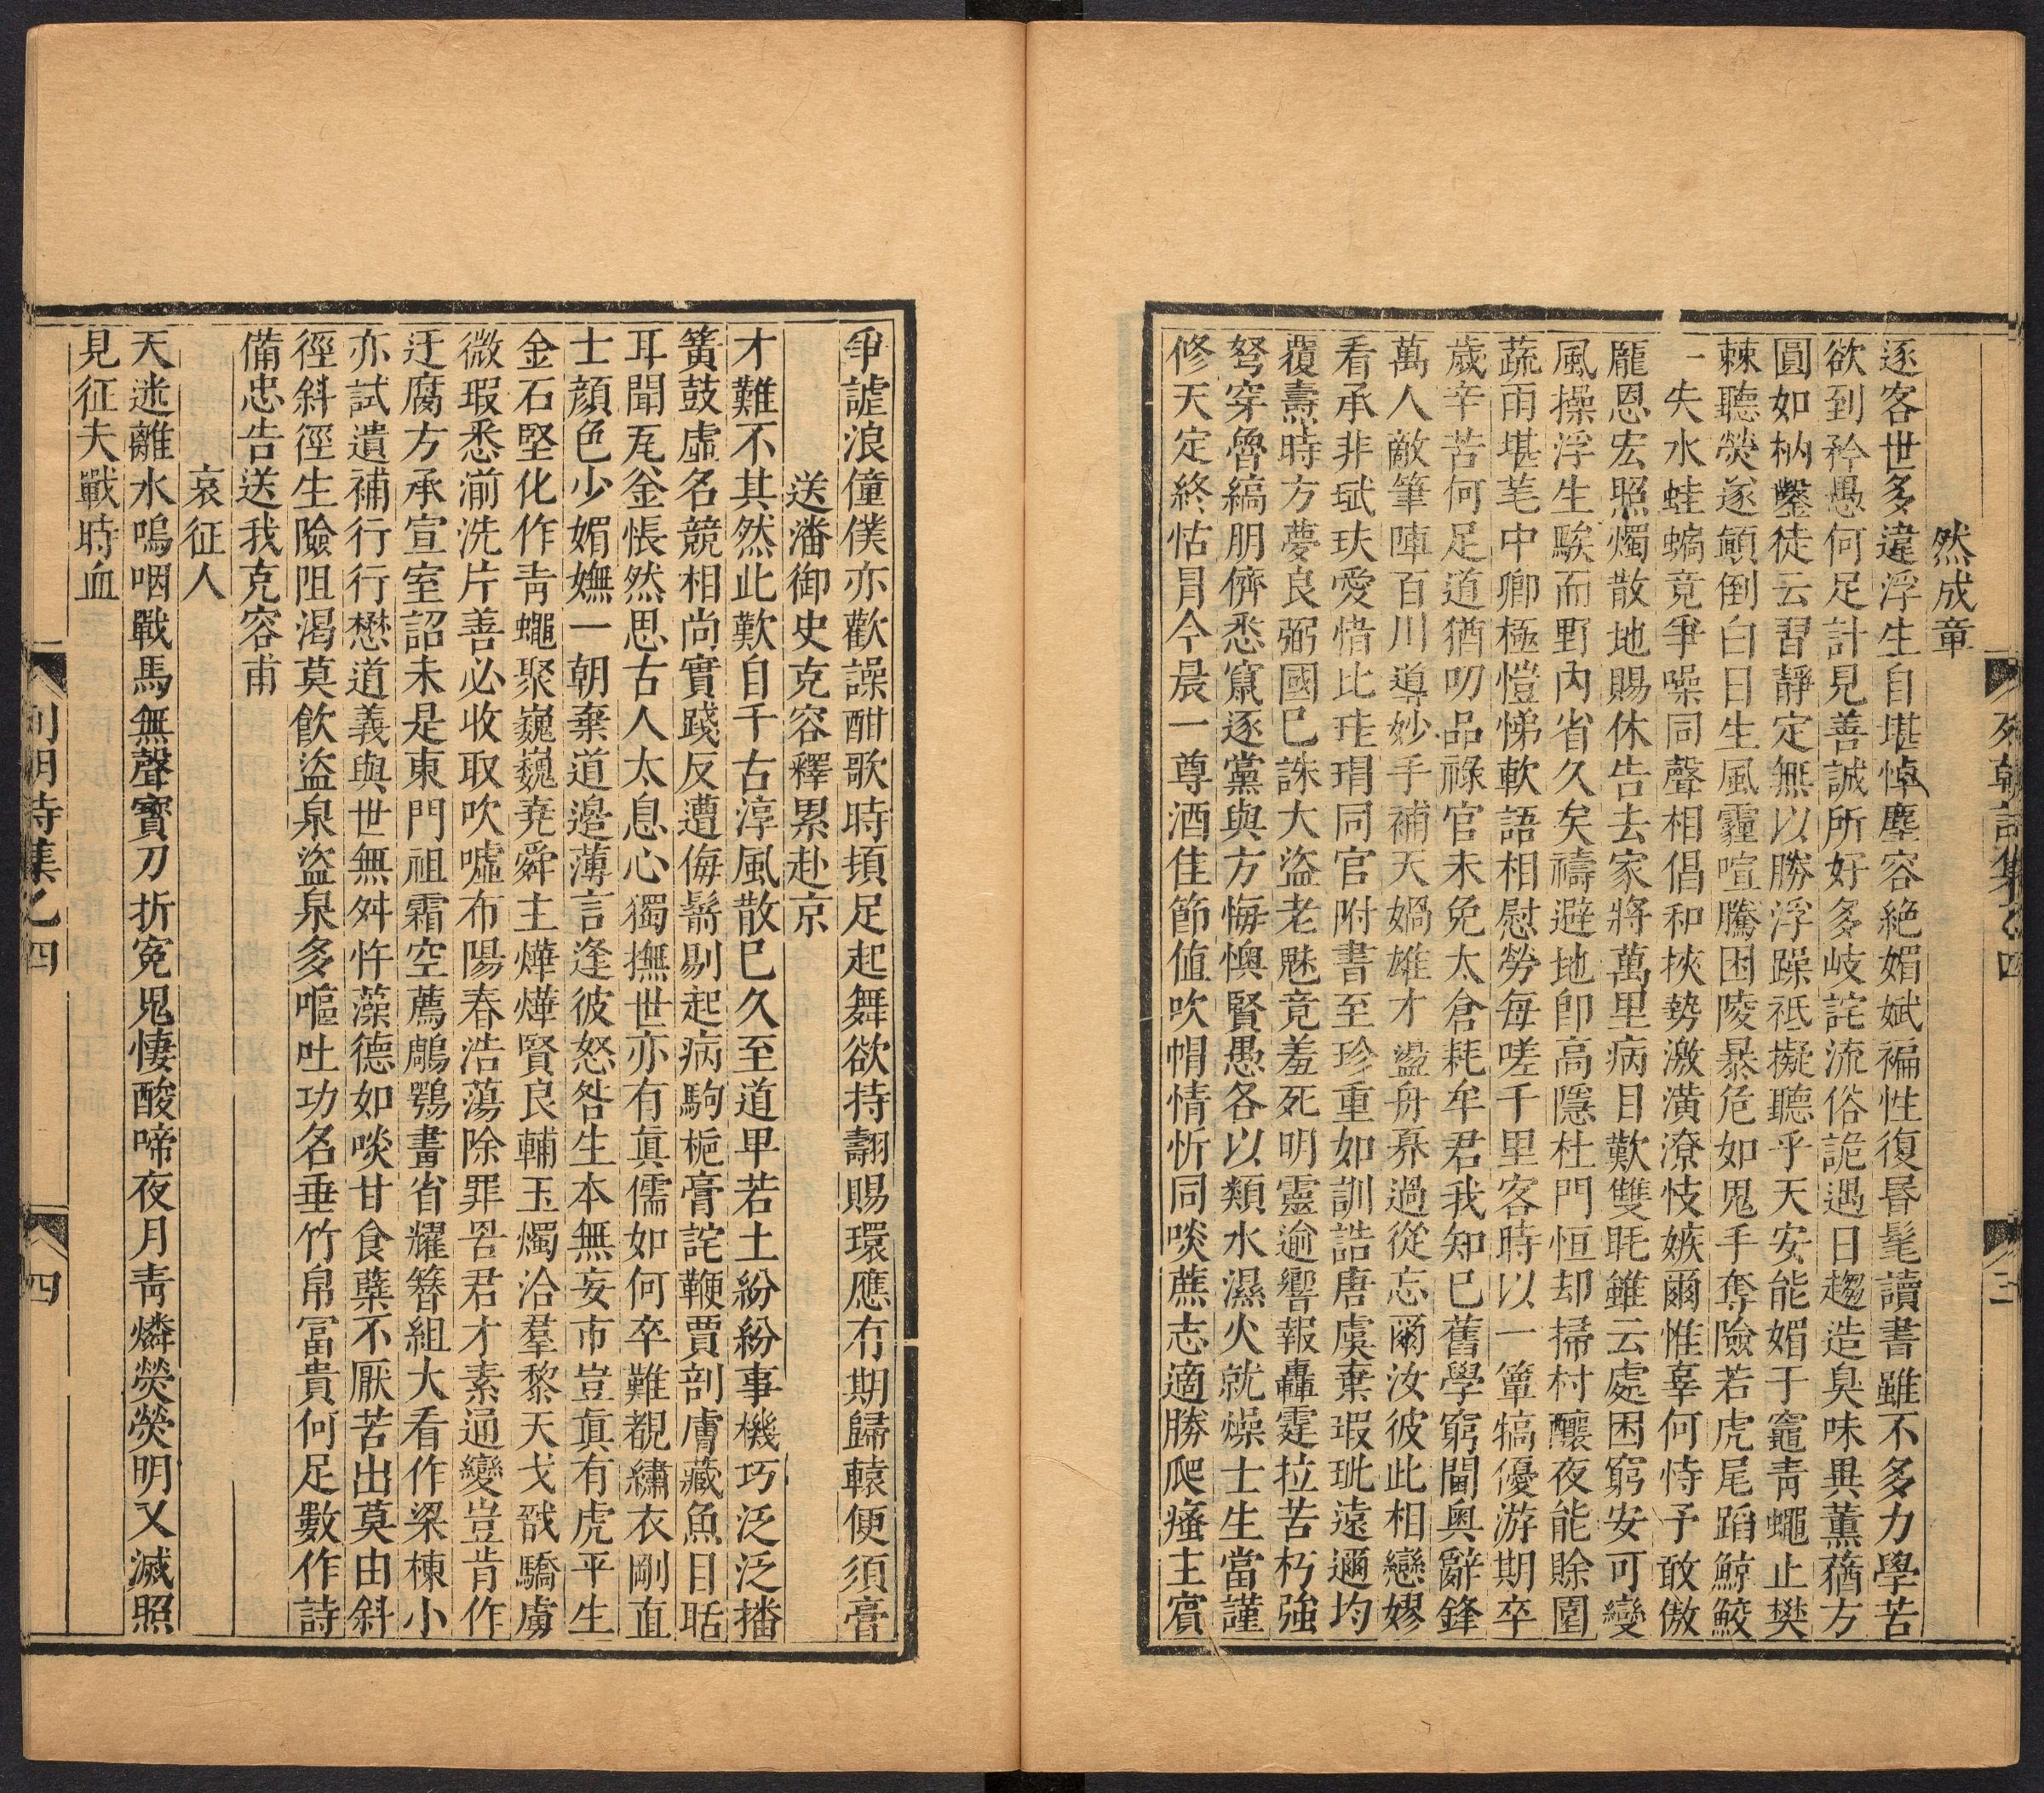 然成章
逐客世多違浮生自堪悼塵容絶媚斌褊性復昬髦讀書雖不多力學苦
欲到矜愚何足計見善誠所好多岐詫流俗詭遇日趨造臭味異薰蕕方
圓如枘鑿徒云習靜定無以勝浮躁祗擬聽乎天安能媚于竈靑蠅止樊
棘聽熒遂顚倒白日生風霾喧騰困陵暴危如鬼手奪險若虎尾蹈鯨鮫
一失水蛙蝸竟爭噪同聲相倡和挾勢激潢潦忮嫉爾惟辜何恃予敢傲
龎恩宏照燭散地賜休告去家將萬里病目歎雙眊雖云處困窮安可變
風操浮生騃而野內省久矣禱避地卽高隱杜門恒却掃村釀夜能賒園
蔬雨堪芼中卿極愷悌軟語相慰勞每嗟千里客時以一簞犒優游期卒
歲辛苦何足道猶叨品祿官未免太倉耗牟君我知巳舊學窮閫奧辭鋒
萬人敵筆陣百川導妙手補天媧雄才盪舟奡過從忘爾汝彼此相戀嫪
看承非珷玞愛惜比珪瑁同官附書至珍重如訓誥唐虞棄瑕玼遠邇均
覆燾時方夢良弼國巳誅大盜老魅竟羞死明靈逾響報轟霆拉苦朽強
弩穿魯縞朋儕悉竄逐黨與方悔懊賢愚各以類水濕火就燥士生當謹
修天定終怙冒今晨一尊酒佳節値吹帽情忻同啖蔗志適勝爬癢主賓
爭謔浪僮僕亦歡譟酣歌時頓足起舞欲持翿賜環應有期歸轅便須膏
送潘御史克容釋累赴京
才難不其然此歎自千古淳風散巳久至道甲若土紛紛事機巧泛泛播
簧鼓虛名競相尚實踐反遭侮鬋剔起病駒梔膏詫鞭賈剖膚藏魚目聒
耳聞瓦釡悵然思古人太息心獨撫世亦有眞儒如何卒難覩繡衣剛直
士顏色少媚嫵一朝棄道邊薄言逢彼怒咎生本無妄市豈眞有虎平生
金石堅化作靑蠅聚巍巍堯舜主燁燁賢良輔玉燭洽羣黎天戈戩驕虜
微瑕悉湔洗片善必收取吹噓布陽春浩蕩除罪罟君才素通變豈肯作
迂腐方承宣室詔未是東門祖霜空薦鵰鶚畫省耀簪組大看作梁棟小
亦試遺補行行懋道義與世無舛忤藻德如啖甘食蘗不厭苦出莫由斜
徑斜徑生險阻渴莫飮盜泉盜泉多嘔吐功名垂竹帛冨貴何足數作詩
備忠告送我克容甫
哀征人
天迷離水嗚咽戰馬無聲寳刀折寃鬼悽酸啼夜月靑燐熒熒明又滅照
見征夫戰時血
列朝詩集乙四 三
列朝詩集乙四 四